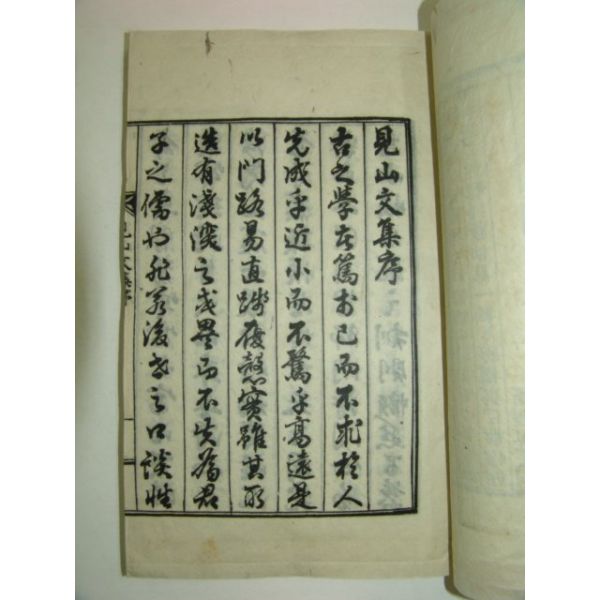 見山文集序
古之學者篤於己而不求於人
先成乎近小而不騖乎高遠是
以門路易直踐履慤實雖其所
造有淺深之或異而不失爲君
子之儒也非若後世之口談性
見山文集序